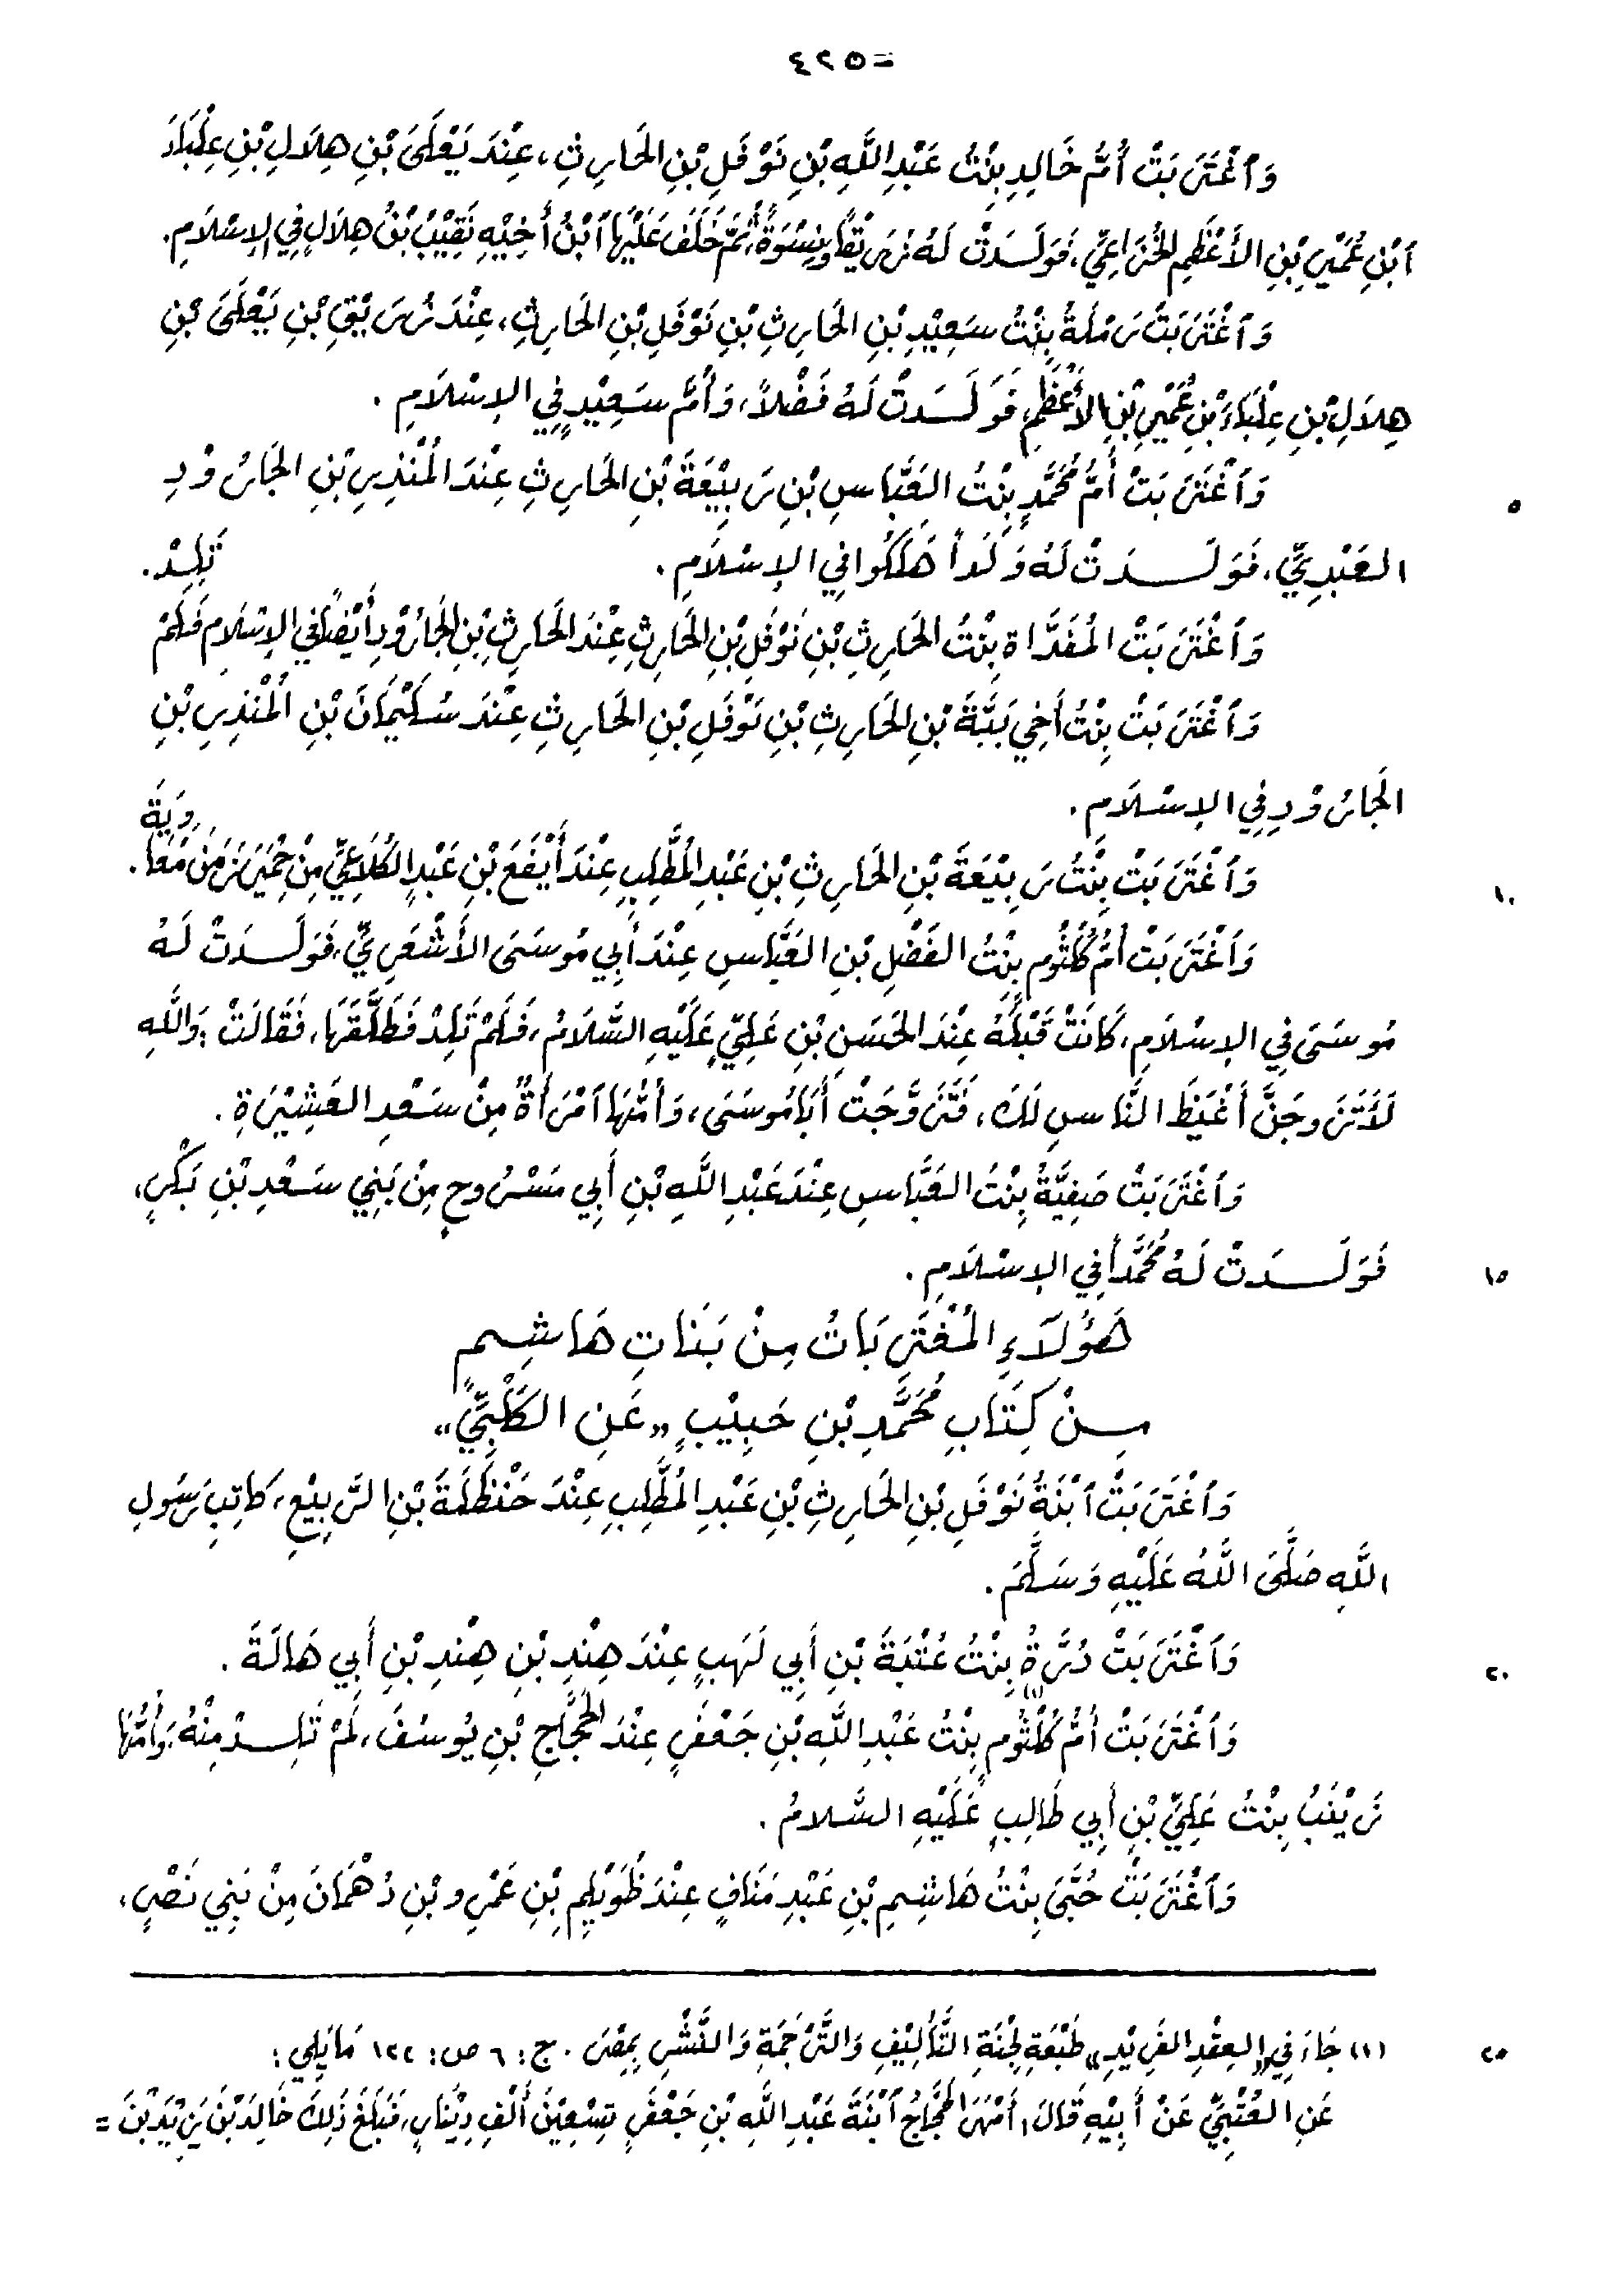 =٤٢٥
وَٱغْتَرَبَتْ أُمُّ خَالِدِ بِنْتُ عَبْدِ اللَّهِ بْنِ نَوْفَلِ بْنِ الحَارِثِ، عِنْدَ يَعْلَى بْنِ هِلَالِ بْنِ عِلْبَاءَ
ٱبْنِ عُمَيْرِ بْنِ الأَعْظَمِ الخُزَاعِيِّ، فَوَلَدَتْ لَهُ زُرَيْقًا وَنِسْوَةً، ثُمَّ خَلَفَ عَلَيْهَا ٱبْنُ أَخِيْهِ نَقِيْبُ بْنُ هِلَالٍ فِي الإِسْلَامِ.
وَٱغْتَرَبَتْ رَمْلَةُ بِنْتُ سَعِيْدِ بْنِ الحَارِثِ بْنِ نَوْفَلِ بْنِ الحَارِثِ، عِنْدَ زُرَيْقِ بْنِ يَعْلَى بْنِ
هِلَالِ بْنِ عِلْبَاءَ بْنِ عُمَيْرِ بْنِ الأَعْظَمِ، فَوَلَدَتْ لَهُ فَضْلاً، وَأُمَّ سَعِيْدٍ فِي الإِسْلَامِ.
وَٱغْتَرَبَتْ أُمُّ مُحَمَّدٍ بِنْتُ العَبَّاسِ بْنِ رَبِيْعَةَ بْنِ الحَارِثِ عِنْدَ المُنْذِرِ بْنِ الجَارُوْدِ
٥
العَبْدِيِّ، فَوَلَدَتْ لَهُ وَلَداً هَلَكُوا فِي الإِسْلَامِ. تَلِدْ.
وَٱغْتَرَبَتْ المُفَدَّاةِ بِنْتُ الحَارِثِ بْنِ نَوْفَلِ بْنِ الحَارِثِ عِنْدَ الحَارِثِ بْنِ الجَارُوْدِ أَيْضاً فِي الإِسْلَامِ فَلَمْ
وَٱغْتَرَبَتْ بِنْتُ أَخِي بَبَّةَ بْنِ الحَارِثِ بْنِ نَوْفَلِ بْنِ الحَارِثِ عِنْدَ سُلَيْمَانَ بْنِ المُنْذِرِ بْنِ
الجَارُوْدِ فِي الإِسْلَامِ.
وَٱغْتَرَبَتْ بِنْتُ رَبِيْعَةَ بْنِ الحَارِثِ بْنِ عَبْدِ المُطَّلِبِ عِنْدَ أَيْفَعَ بْنِ عَبْدٍ الكُلَاعِيِّ مِنْ حِمْيَرَ زَمَنَ مُعَاوِيَةَ.
١٠
وَٱغْتَرَبَتْ أُمُّ كُلْثُومِ بِنْتُ الفَضْلِ بْنِ العَبَّاسِ عِنْدَ أَبِي مُوسَى الأَشْعَرِيِّ، فَوَلَدَتْ لَهُ
مُوسَى فِي الإِسْلَامِ، كَانَتْ قَبْلَهُ عِنْدَ الحَسَنِ بْنِ عَلِيٍّ عَلَيْهِ السَّلَامُ، فَلَمْ تَلِدْ فَطَلَّقَهَا، فَقَالَتْ: وَاللَّهِ
لَأَتَزَوجَنَّ أَغْيَظَ النَّاسِ لَكَ، فَتَزَوَّجَتْ أَبَا مُوسَى، وَأُمُّهَا ٱمْرَأَةٌ مِنْ سَعْدِ العَشِيْرَةِ.
وَٱغْتَرَبَتْ صَفِيَّةُ بِنْتُ العَبَّاسِ عِنْدَ عَبْدِ اللَّهِ بْنِ أَبِي مَسْرُوحٍ مِنْ بَنِي سَعْدِ بْنِ بَكْرٍ،
فَوَلَدَتْ لَهُ مُحَمَّداً فِي الإِسْلَامِ.
١٥
هَؤُلَاءِ المُغْتَرِبَاتُ مِنْ بَنَاتِ هَاشِمٍ
مِنْ كِتَابِ مُحَمَّدِ بْنِ حَبِيْبٍ «عَنِ الكَلْبِيِّ»
وَٱغْتَرَبَتْ ٱبْنَةُ نَوْفَلِ بْنِ الحَارِثِ بْنِ عَبْدِ المُطَّلِبِ عِنْدَ حَنْظَلَةَ بْنِ الرَّبِيْعِ، كَاتِبِ رَسُولِ
اللَّهِ صَلَّى اللَّهُ عَلَيْهِ وَسَلَّمَ.
وَٱغْتَرَبَتْ دُرَّةُ بِنْتُ عُتْبَةَ بْنِ أَبِي لَهَبٍ عِنْدَ هِنْدِ بْنِ هِنْدِ بْنِ أَبِي هَالَةَ.
٢٠
وَٱغْتَرَبَتْ أُمُّ كُلْثُومٍ (١) بِنْتُ عَبْدِ اللَّهِ بْنِ جَعْفَرٍ عِنْدَ الحَجَّاجِ بْنِ يُوسُفَ، لَمْ تَلِدْ مِنْهُ، وَأُمُّهَا
زَيْنَبُ بِنْتُ عَلِيِّ بْنِ أَبِي طَالِبٍ عَلَيْهِ السَّلامُ.
وَٱغْتَرَبَتْ حُبَّى بِنْتُ هَاشِمِ بْنِ عَبْدِ مَنَافٍ عِنْدَ ظُوَيْلِمِ بْنِ عَمْرِو بْنِ دُهْمَانَ مِنْ بَنِي نَصْرٍ،
(١) جَاءَ فِي «العِقْدِ الفَرِيْدِ» طَبْعَةِ لَجْنَةِ التَّأْلِيْفِ وَالتَّرْجَمَةِ وَالنَّشْرِ بِمِصْرَ. ج: ٦ ص: ١٢٢ مَا يَلِي:
٢٥
عَنِ العُتْبِيِّ عَنْ أَبِيْهِ قَالَ، أَمْهَرَ الحَجَّاجُ ٱبْنَةَ عَبْدِ اللَّهِ بْنِ جَعْفَرٍ تِسْعِيْنَ أَلْفِ دِيْنَارٍ، فَبَلَغَ ذَلِكَ خَالِدَ بْنَ يَزِيْدَ بْنَ =